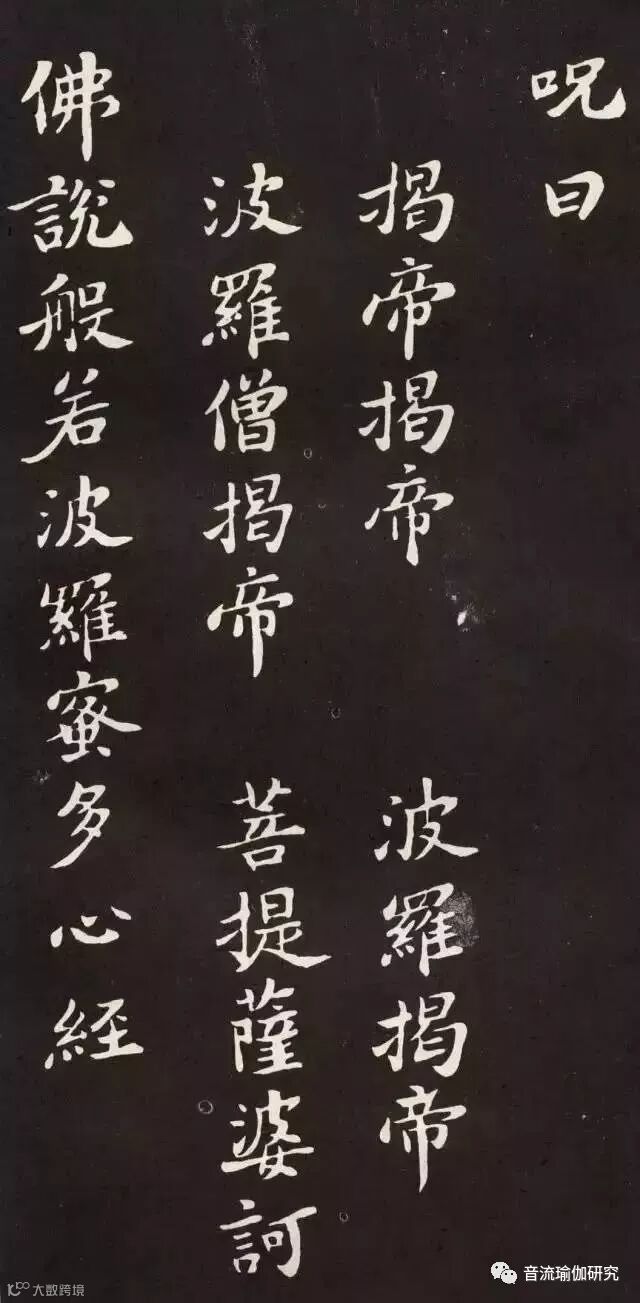 呪曰
揭帝揭帝 波羅揭帝
波羅僧揭帝 菩提薩婆訶
佛說般若波羅蜜多心経
音流瑜伽研究
大数跨境